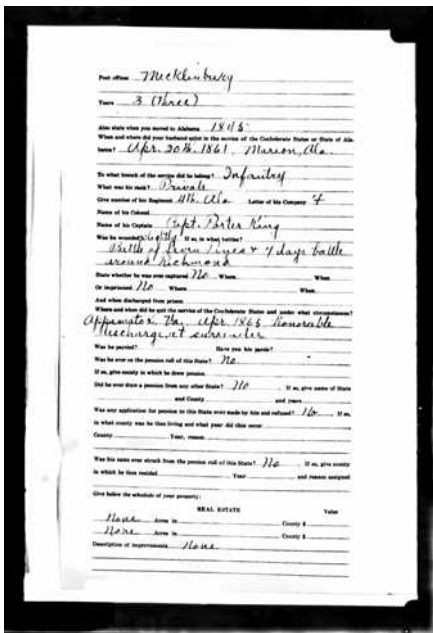 Post office: Mecklinburg
Years 3 (three)
Also state when you moved to Alabama 1845
When and where did your husband enlist in the service of the Confederate States or State of Ala-
bama? Apr. 20th. 1861. Marion, Ala.
To what branch of the service did he belong? Infantry
What was his rank? Private
Give number of his Regiment 4th. Ala Letter of his Company
Name of his Colonel
Name of his Captain Capt. Porter King
Was he wounded slightly If so, in what battles?
Battle of Seven Pines & 7 days battle
around Richmond
State whether he was ever captured No Where When
Or imprisoned No Where When
And when discharged from prison
Where and when did he quit the service of the Confederate States and under what circumstances?
Appamatox Va. Apr 1865 Honorable
discharge, at surrender
Was he paroled? Have you his parole?
Was he ever on the pension roll of this State? No
If so, give county in which he drew pension
Did he ever draw a pension from any other State? No If so, give name of State
and County and years
Was any application for pension in this State ever made by him and refused? No If so,
in what county was he then living and what year did this occur
County Year, reason
Was his name ever struck from the pension roll of this State? No If so, give county
in which he then resided Year and reason assigned
Give below the schedule of your property:
REAL ESTATE Value
None Acres in County $
None Acres in County $
Description of improvements None